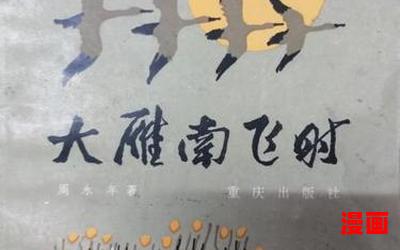 大雁南飞时
周永年著 重庆出版社
漫画